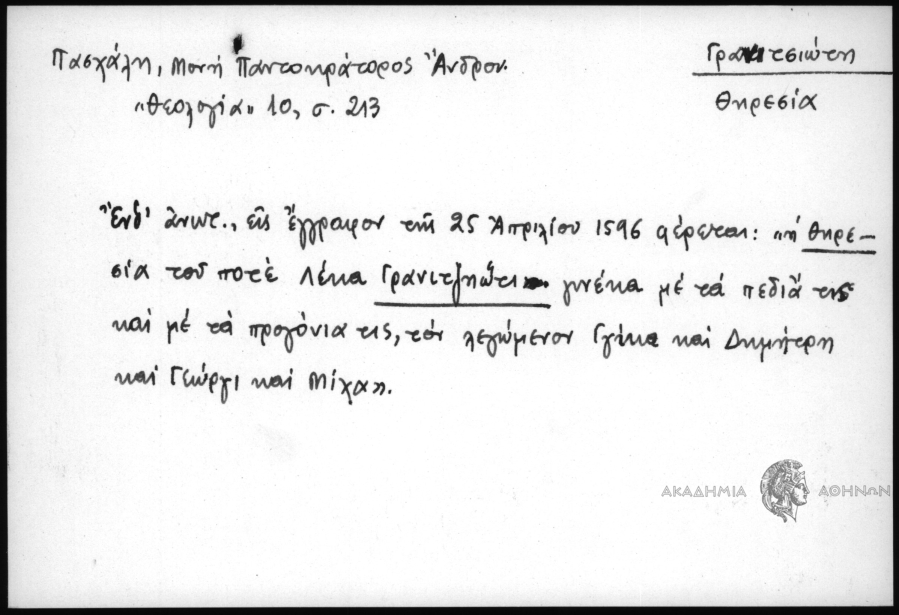 Πασχάλη, Μονή Παντοκράτορος Ἄνδρου.
"Θεολογία" 10, σ. 213
Γρανιτσιώτη
Θηρεσία
Ἔνθ' ἀνωτ., εἰς ἔγγραφον τῆς 25 Ἀπριλίου 1596 φέρεται: "ἡ Θηρε-
σία τοῦ ποτὲ Λέκα Γρανιτζηώτι γινέκα μέ τά πεδιᾶ τις
καί μέ τά προγόνια τις, τόν λεγώμενον Γγίκα καί Δημήτρη
καί Γεώργι καί Μίχαλη.
ΑΚΑΔΗΜΙΑ ΑΘΗΝΩΝ